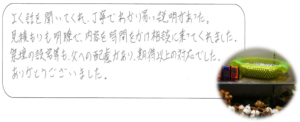 よく話を聞いてくれ、丁寧で分かり易い説明があった。
見積もりも明確で、内容を時間をかけ相談に乗ってくれました。
管理の改善等も、次への配慮があり、期待以上の対応でした。
ありがとうございました。